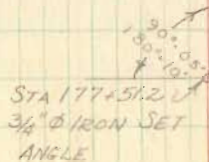 90° 05'
180° 10'
STA 177+51.2
3/4" Φ IRON SET
ANGLE